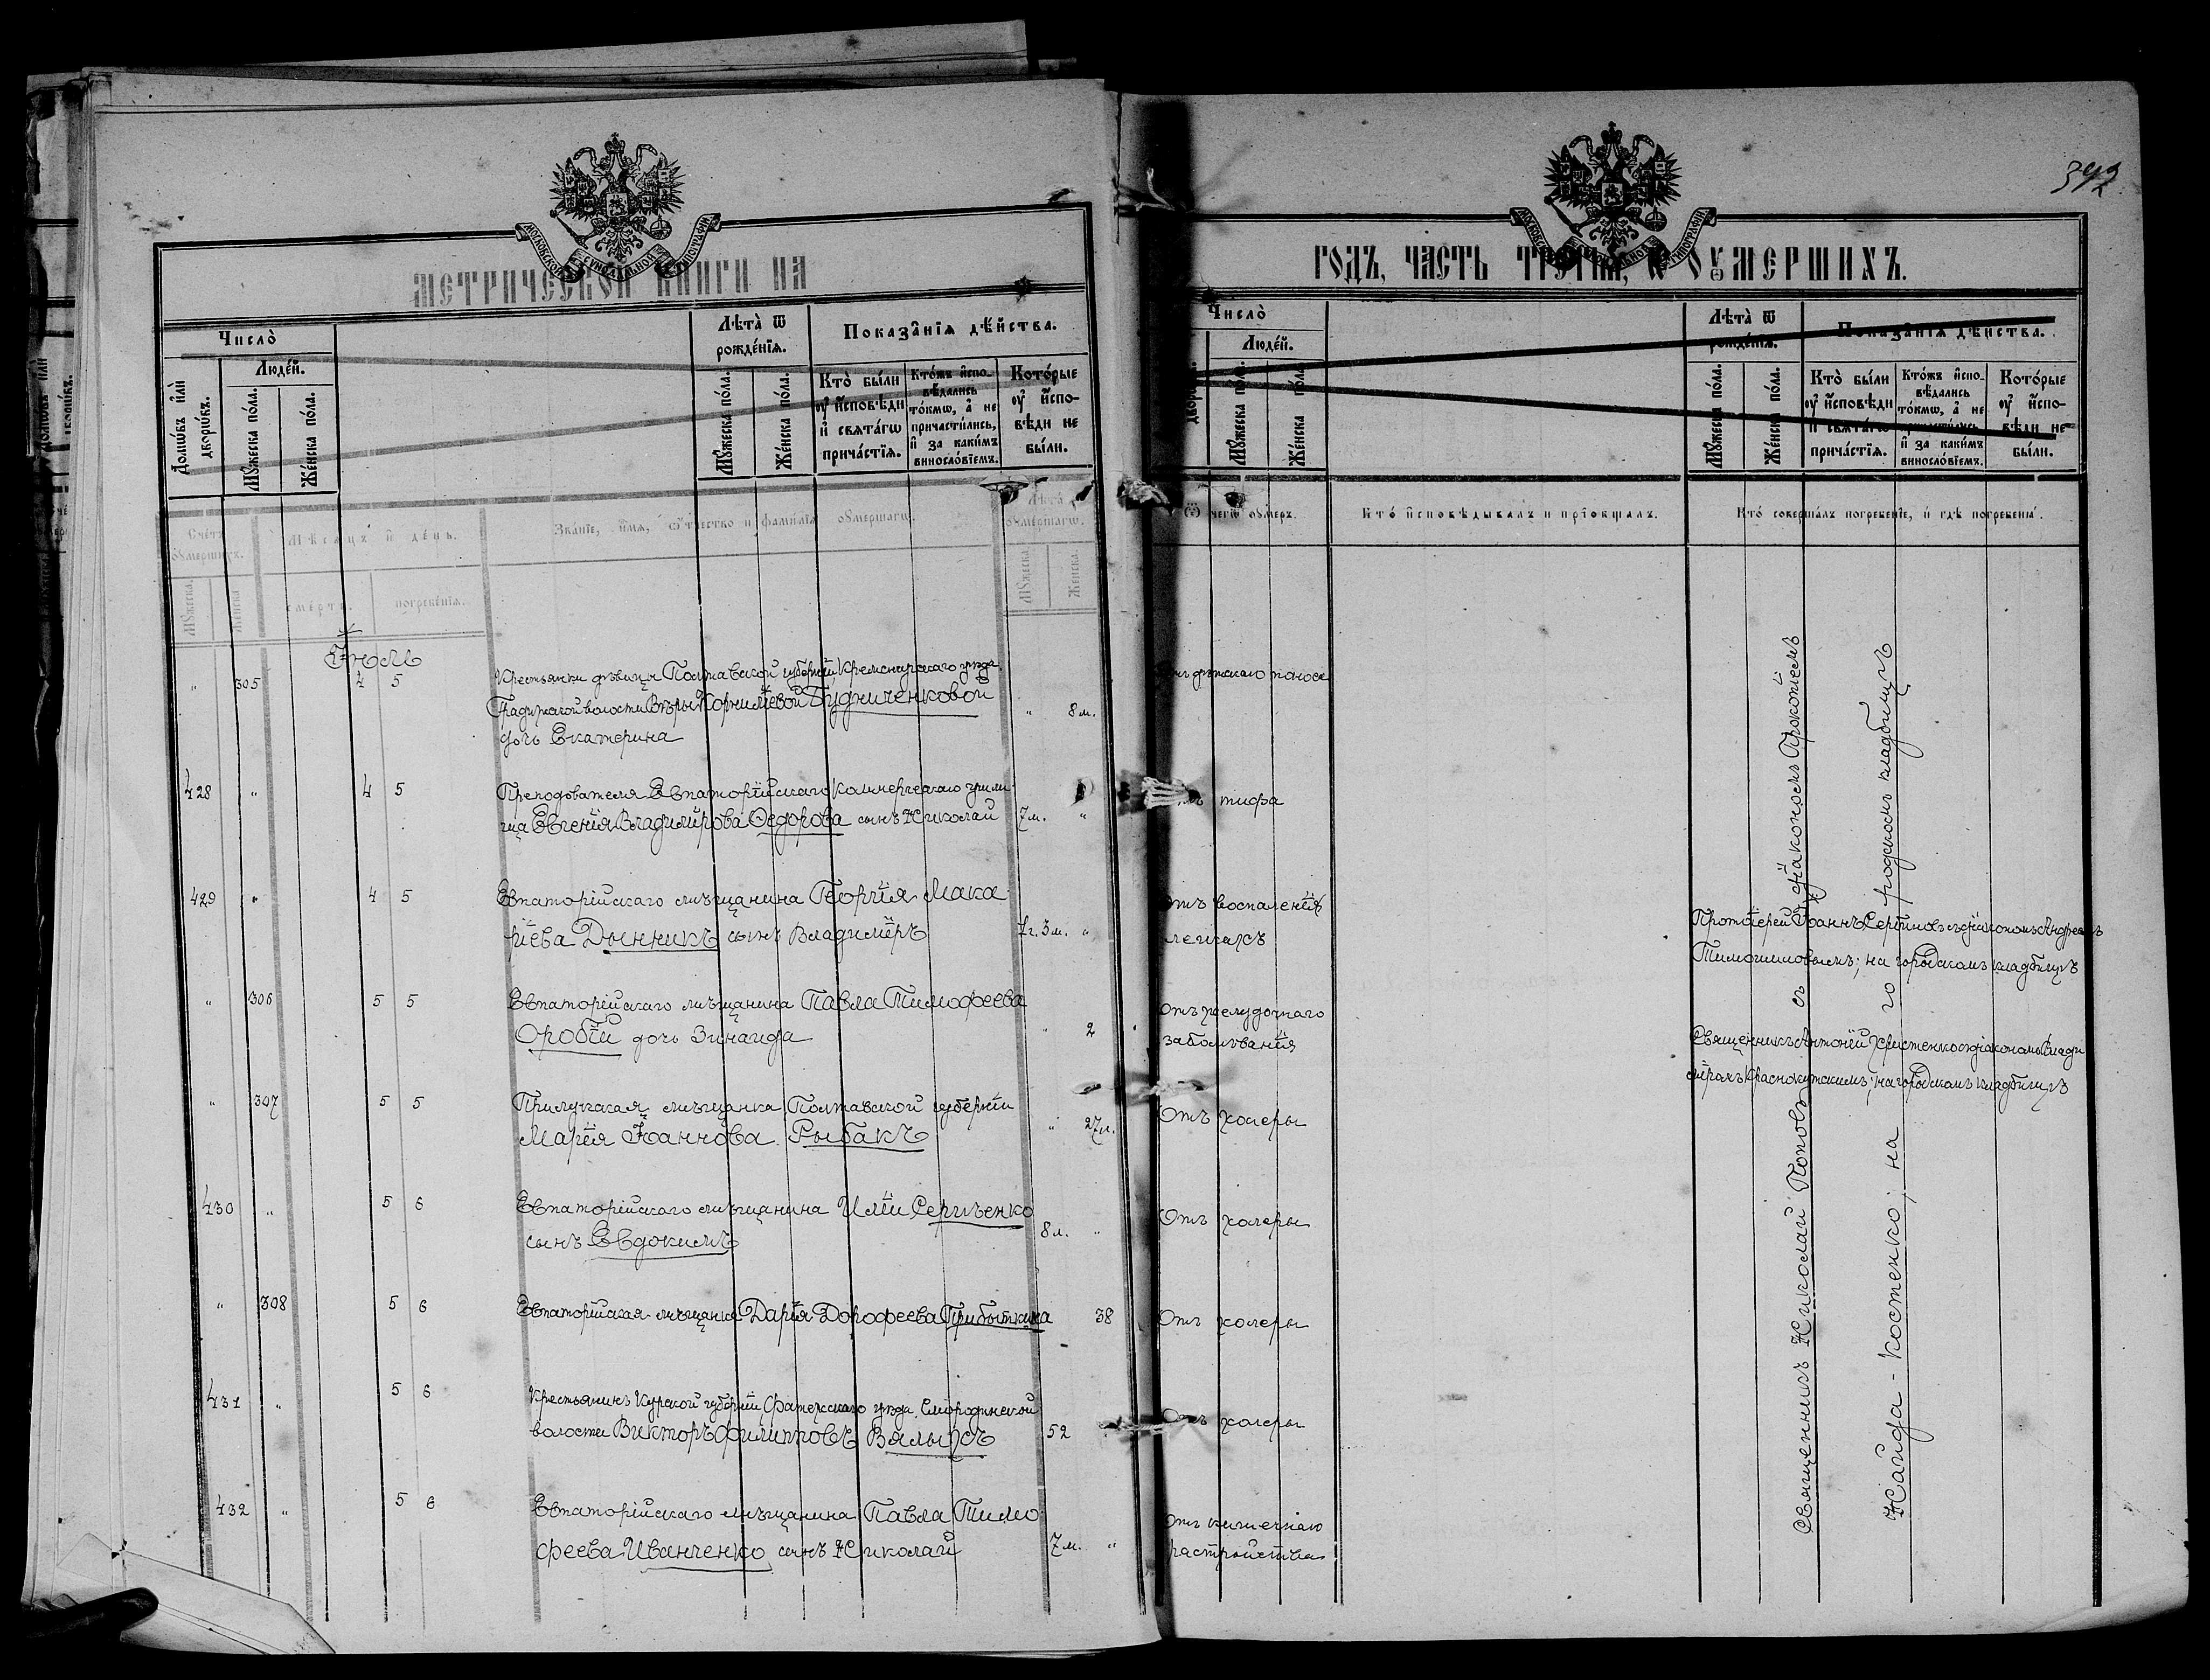 392
МОСКОВСКОЙ СѴНОДАЛЬНОЙ ТИПОГРАФІИ
МЕТРИЧЕСКОЙ КНИГИ НА
Число̀
Люде́й.
Домѡ́въ и҆лѝ дворѡ́въ.
Мꙋ́жеска по́ла.
Же́нска по́ла.
Лѣта̀ ѿ рожде́нїѧ.
Мꙋ́жеска по́ла.
Же́нска по́ла.
Показа̑нїѧ дѣ́йства.
Кто̀ бы́ли
ᲂу҆ и҆́сповѣди
и҆ свѧта́гѡ
прича́стїѧ.
Кто́жъ и҆спо-
вѣ́дались
то́кмѡ, а҆ не
причасти́лись,
и҆ за каки́мъ
винос​ло́вїемъ.
Кото́рые
ᲂу҆ и҆́спо-
вѣди не
бы́ли.
Сче́тъ ᲂумершихъ.
Мꙋжеска
Женска
Мѣсѧцъ и день.
смерти.
погребенїѧ.
Званїе, имѧ, ѻтчество и фамилїѧ ᲂумершагѡ.
Лѣта ᲂумершагѡ.
Мꙋжеска
Женска
Іюль
" 305 4 5 Крестьянки дѣвицы Полтавской губерніи, Кременчугскаго уѣзда,
волости Вѣры Корниліевой Будниченковой " 8 м.
дочь Екатерина
428 " 4 5 Преподователя Евпаторійскаго коммерческаго учили-
ща Евгенія Владимірова Ѳедорова сынъ Николай 7 м. "
429 " 4 5 Евпаторійскаго мѣщанина Георгія Мака-
ріева Дынникъ сынъ Владиміръ 7 г. 3 м. "
" 306 5 5 Евпаторійскаго мѣщанина Павла Тимофеева
Оробій дочь Зинаида " 2
" 307 5 5 Прилукская мѣщанка Полтавской губерніи
Марія Іоаннова Рыбакъ " 27 л.
430 " 5 6 Евпаторійскаго мѣщанина Иліи Сергѣенко
сынъ Евдокимъ 8 л. "
" 308 5 6 Евпаторійская мѣщанка Дарія Дорофеева Прибыткина 38
431 " 5 6 Крестьянинъ Курской губерніи, Фатежскаго уѣзда, Смородинской
волости Викторъ Филипповъ Вялыхъ 52
432 " 5 6 Евпаторійскаго мѣщанина Павла Тимо-
феева Иванченко сынъ Николай 7 м. "
МОСКОВСКОЙ СѴНОДАЛЬНОЙ ТИПОГРАФІИ
ГОДЪ, ЧАСТЬ ТРЕТІѦ, Ѡ ОУМЕРШИХЪ.
Число̀
Люде́й.
дворѡ́въ.
Мꙋ́жеска по́ла.
Же́нска по́ла.
Лѣта̀ ѿ рожде́нїѧ.
Мꙋ́жеска по́ла.
Же́нска по́ла.
Показа̑нїѧ дѣ́йства.
Кто̀ бы́ли
ᲂу҆ и҆́сповѣди
и҆ свѧта́гѡ
прича́стїѧ.
Кто́жъ и҆спо-
вѣ́дались
то́кмѡ, а҆ не
причасти́лись,
и҆ за каки́мъ
винос​ло́вїемъ.
Кото́рые
ᲂу҆ и҆́спо-
вѣди не
бы́ли.
Ѿ чегѡ ᲂумеръ.
Кто исповѣдывалъ и прїобщалъ.
Кто совершалъ погребенїе, и гдѣ погребены.
Отъ дѣтскаго поноса
Отъ тифа
Отъ воспаленія
легкихъ
Отъ желудочнаго
заболѣванія
Отъ холеры
Отъ холеры
Отъ холеры
Отъ холеры
Отъ кишечнаго
растройства
Протоіерей Іоаннъ Сербиновъ съ діакономъ Андреемъ
Тимошиловымъ; на городскомъ кладбищѣ
Священникъ Антоній Христенко съ діакономъ Влади-
міромъ Краснокутскимъ; на городскомъ кладбищѣ
Священникъ Николай Поповъ съ діакономъ Прокопіемъ
Найда-Костенко; на городскомъ кладбищѣ